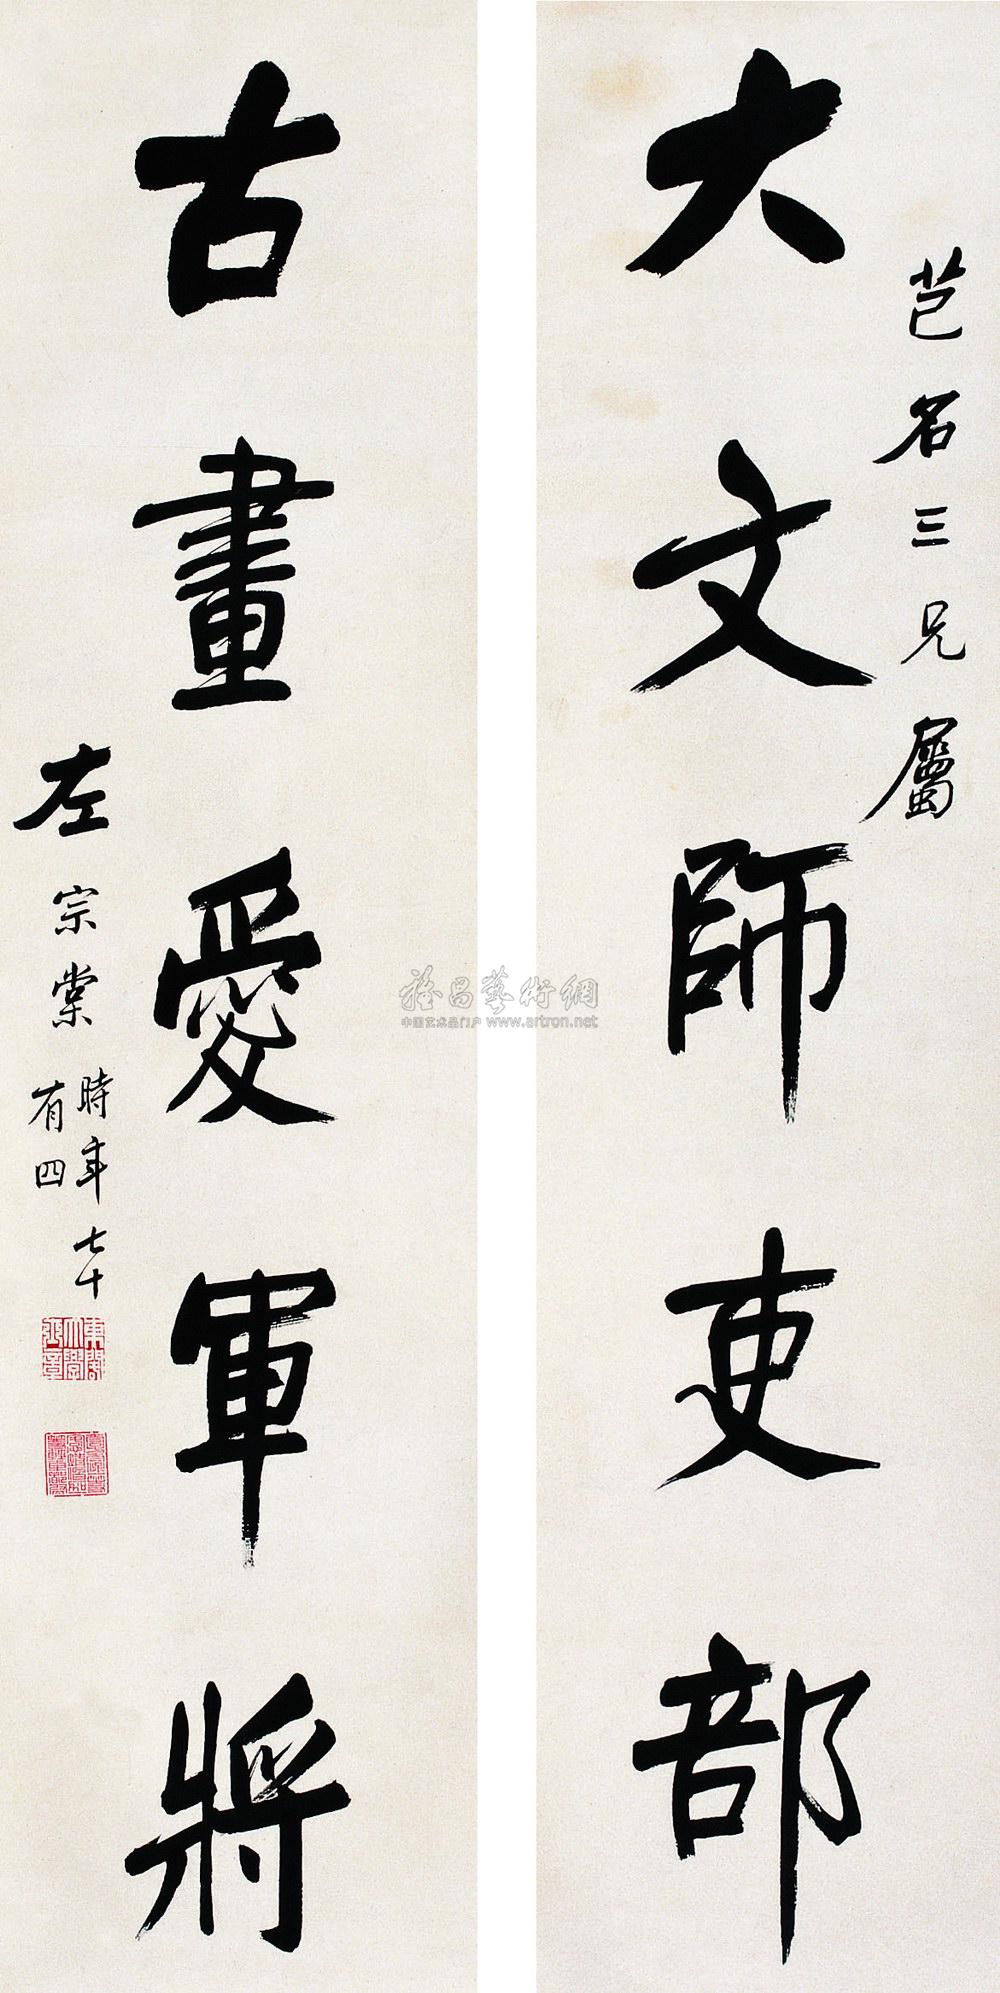 芑名三兄屬
大文師吏部
古畫愛軍將
左宗棠
時年七十
有四
中国艺术品门户 www.artron.net